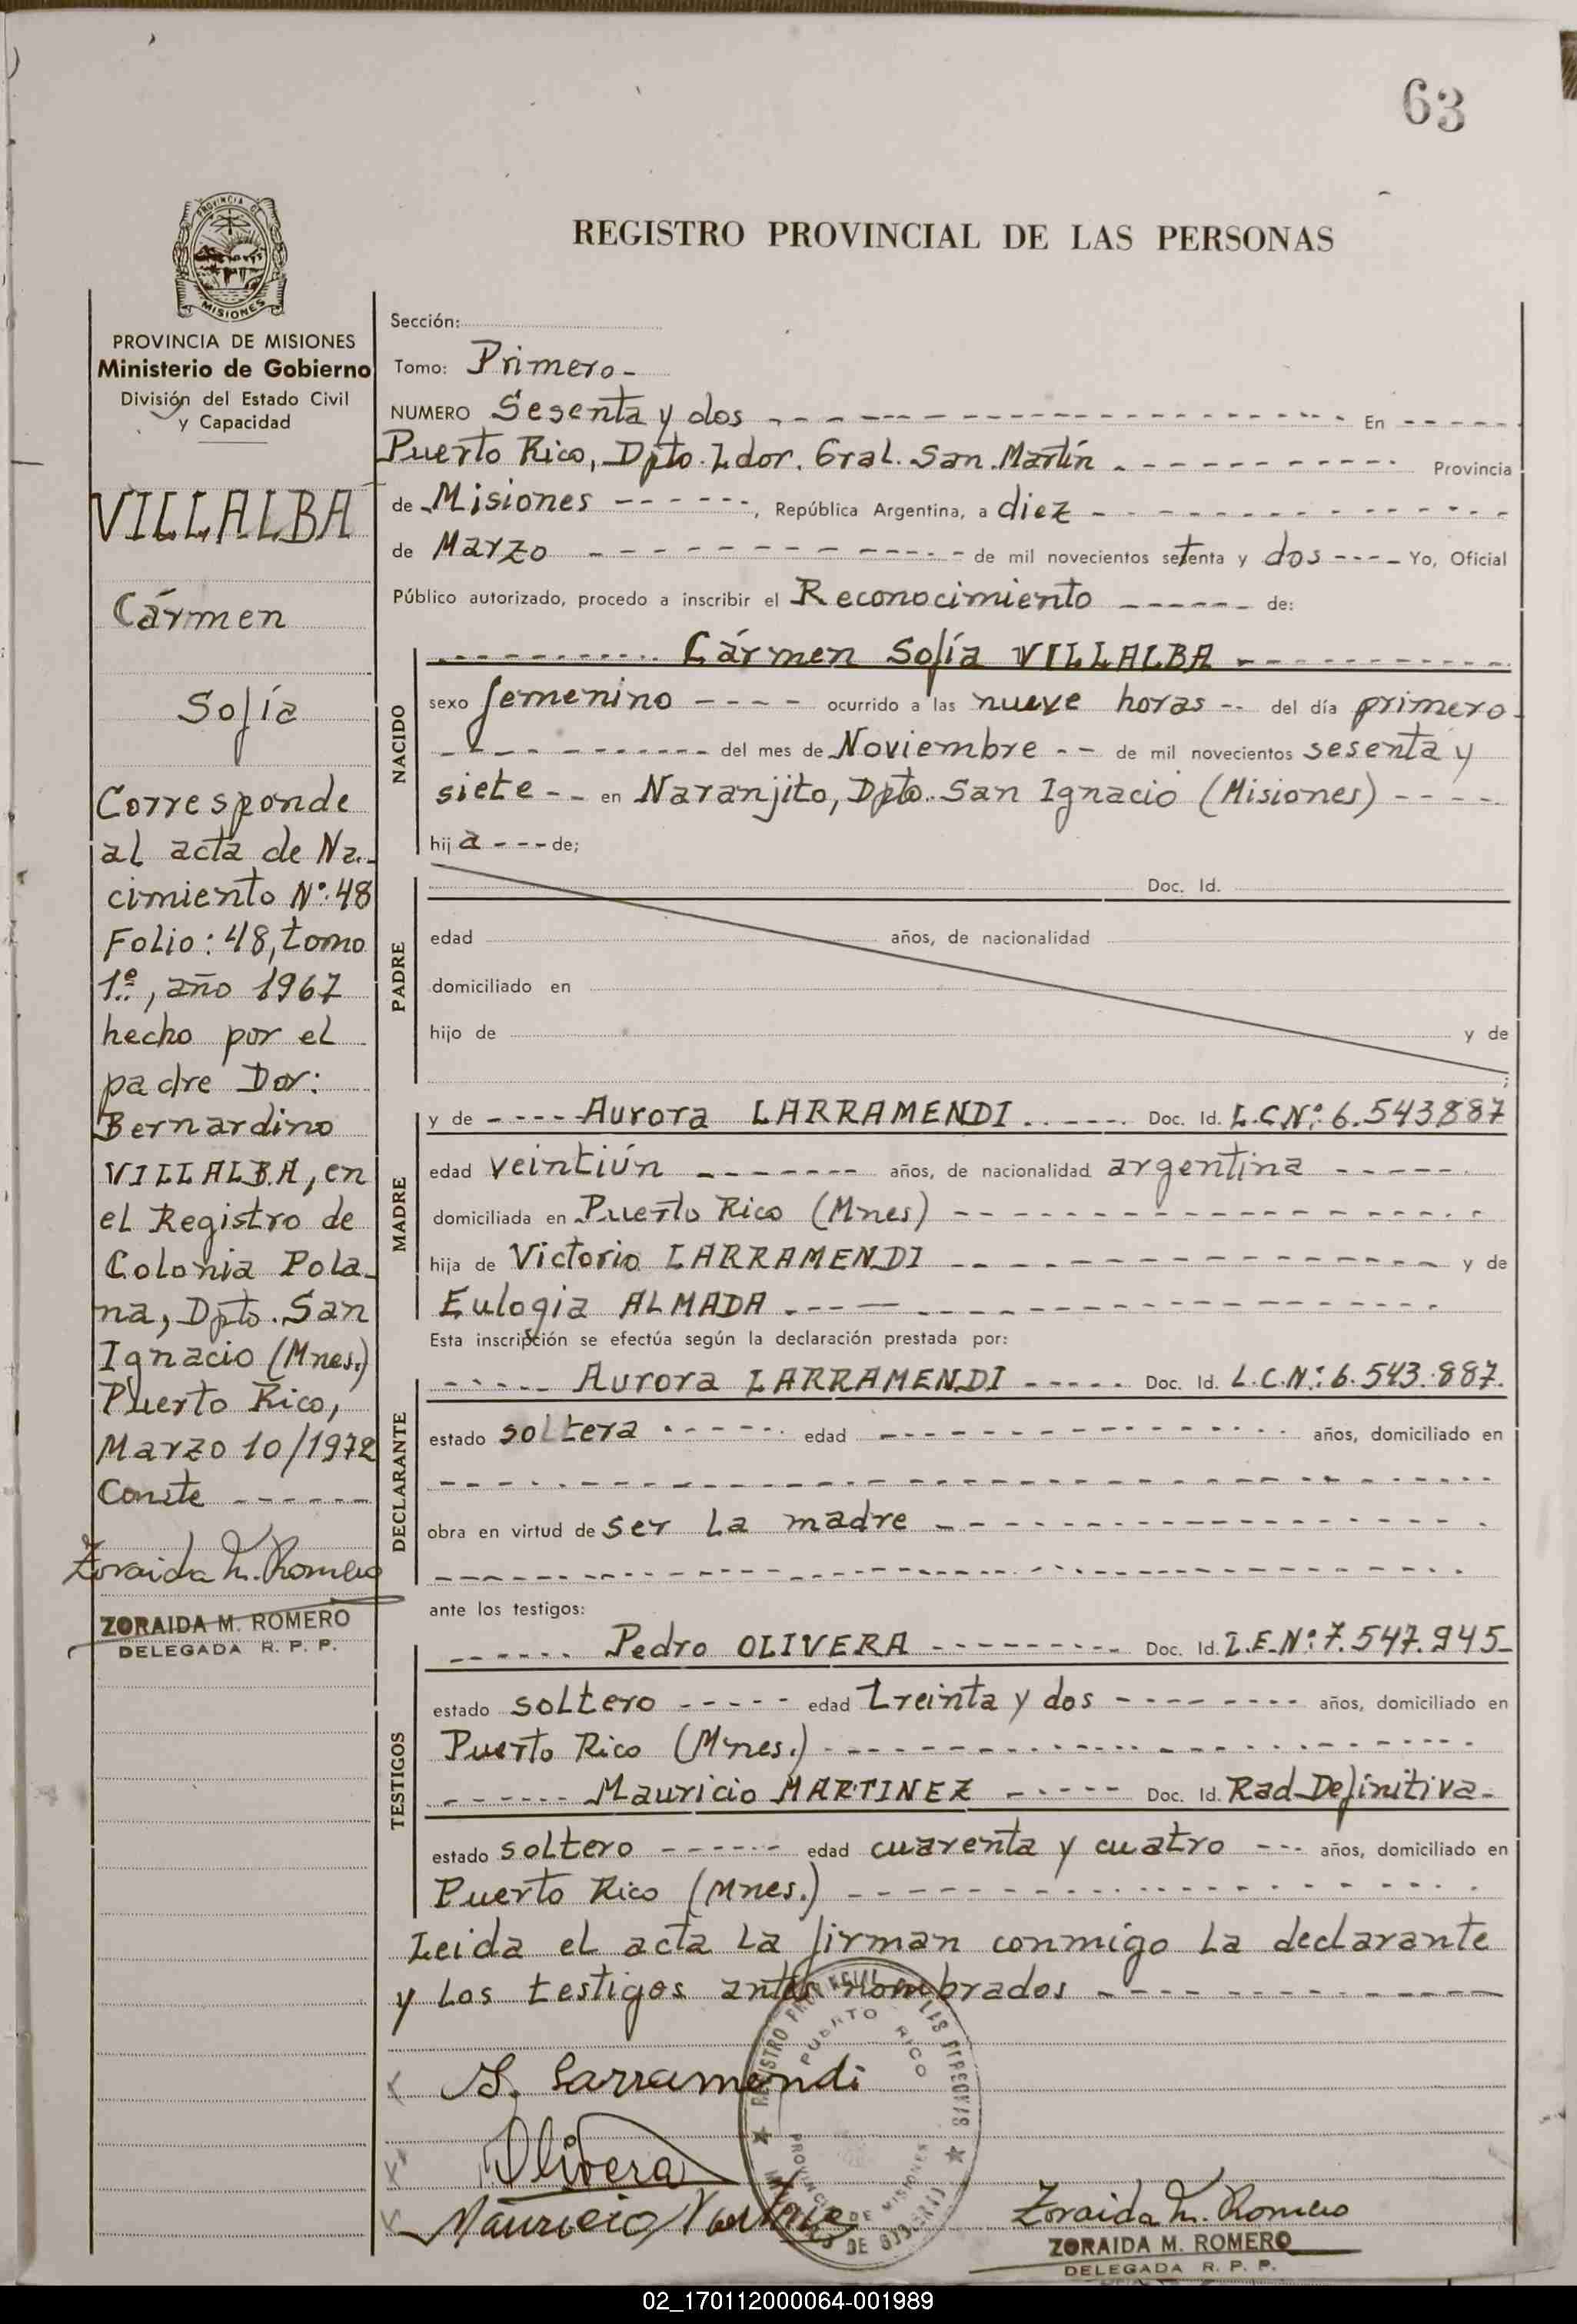 63
PROVINCIA DE
MISIONES
REGISTRO PROVINCIAL DE LAS PERSONAS
PROVINCIA DE MISIONES
Ministerio de Gobierno
División del Estado Civil
y Capacidad
VILLALBA
Cármen
Sofía
Corresponde
al acta de Na-
cimiento Nº: 48
Folio: 48, tomo
1º, año 1967
hecho por el
padre Dor:
Bernardino
VILLALBA, en
el Registro de
Colonia Pola-
na, Dpto. San
Ignacio (Mnes.)
Puerto Rico,
Marzo 10/1972
Conste ------
Zoraida M. Romero
ZORAIDA M. ROMERO
DELEGADA R. P. P.
Sección:
Tomo: Primero-
NUMERO Sesenta y dos ------ En -----
Puerto Rico, Dpto. Ldor. Gral. San Martín ------ Provincia
de Misiones ------, República Argentina, a diez ------
de Marzo ------ de mil novecientos setenta y dos --- Yo, Oficial
Público autorizado, procedo a inscribir el Reconocimiento ------ de:
NACIDO
------ Cármen Sofía VILLALBA ------
sexo femenino ---- ocurrido a las nueve horas -- del día primero-
------ del mes de Noviembre -- de mil novecientos sesenta y
siete -- en Naranjito, Dpto. San Ignacio (Misiones) ----
hija --- de;
PADRE
Doc. Id.
edad años, de nacionalidad
domiciliado en
hijo de y de
;
MADRE
y de ---- Aurora LARRAMENDI ------ Doc. Id. L.C.Nº: 6.543887
edad veintiún ------ años, de nacionalidad argentina -----
domiciliada en Puerto Rico (Mnes) ------
hija de Victorio LARRAMENDI ------ y de
Eulogia ALMADA ------
Esta inscripción se efectúa según la declaración prestada por:
DECLARANTE
----- Aurora LARRAMENDI ----- Doc. Id. L.C.Nº: 6.543.887.
estado soltera ------ edad ------ años, domiciliado en
------
obra en virtud de ser la madre ------
------
ante los testigos:
TESTIGOS
------ Pedro OLIVERA ------ Doc. Id. L.E.Nº: 7.547.945-
estado soltero ----- edad treinta y dos ------ años, domiciliado en
Puerto Rico (Mnes.) ------
------ Mauricio MARTINEZ ----- Doc. Id. Rad-Definitiva-
estado soltero ------ edad cuarenta y cuatro --- años, domiciliado en
Puerto Rico (Mnes.) ------
Leida el acta la firman conmigo la declarante
y los testigos antes nombrados ------
Larramendi
Olivera
Mauricio
REGISTRO PROVINCIAL
PUERTO RICO
PROVINCIA DE MISIONES
Zoraida M. Romero
ZORAIDA M. ROMERO
DELEGADA R. P. P.
02_170112000064-001989